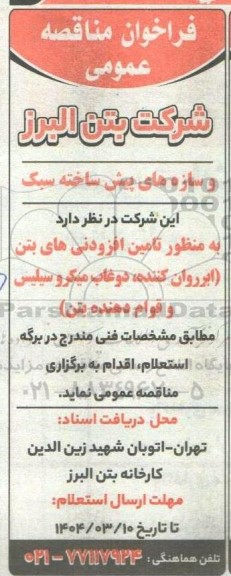 فراخوان مناقصه
عمومی
شرکت بتن البرز
و سازه های پیش ساخته سبک
این شرکت در نظر دارد
به منظور تامین افزودنی های بتن
(ابرروان کننده، دوغاب میکروسیلیس
و قوام دهنده بتن)
مطابق مشخصات فنی مندرج در برگه
استعلام، اقدام به برگزاری
مناقصه عمومی نماید.
محل دریافت اسناد:
تهران-اتوبان شهید زین الدین
کارخانه بتن البرز
مهلت ارسال استعلام:
تا تاریخ ۱۴۰۴/۰۳/۱۰
تلفن هماهنگی: ۷۷۱۱۷۹۲۴ - ۰۲۱